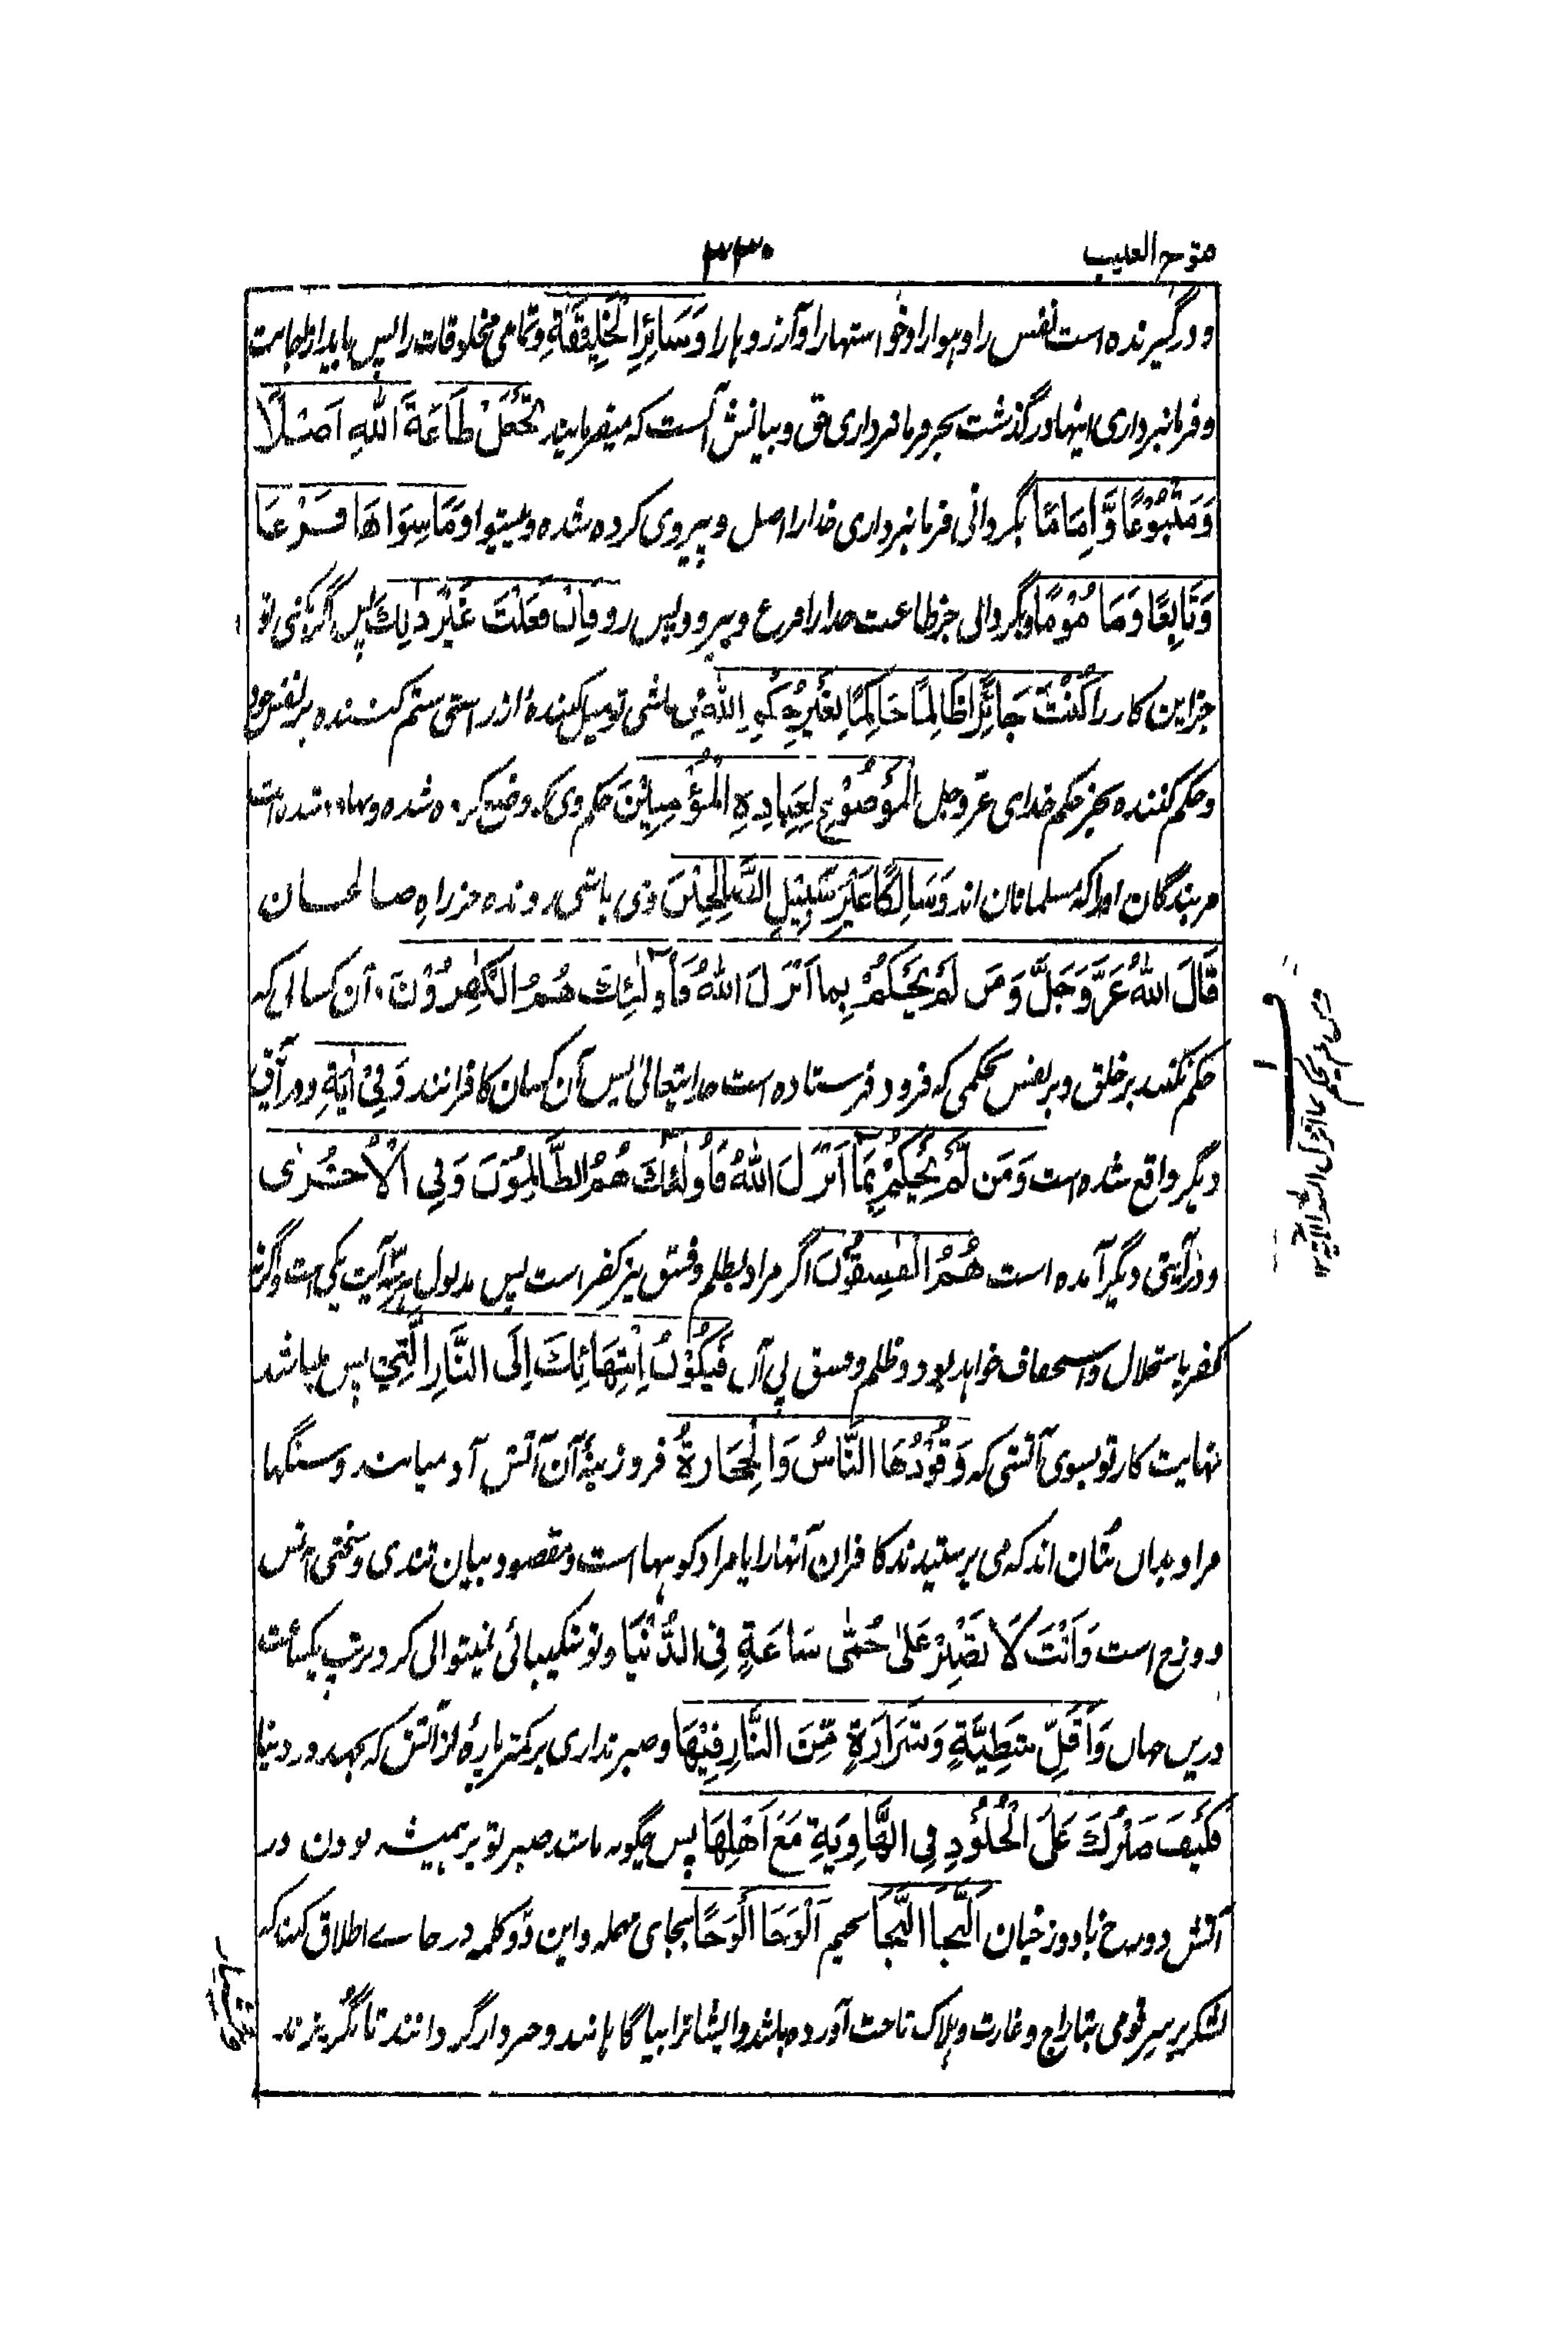 فتوح الغیب
۳۳۰
و درگیرنده است نفس را و هوا را و خواستها را و آرزوها را وَسَائِرَ الْخَلِیْقَةِ و تمامی مخلوقات را پس باید از طاعت
و فرمانبرداری اینها درگذشت بجز فرمانبرداری حق و بیانش آنست که میفرمایند تَجْعَلْ طَاعَةَ اللهِ اَصْلًا
وَمَتْبُوْعًا وَّاِمَامًا بگردانی فرمانبرداری خدا را اصل و پیروی کرده شده و پیشوا وَمَا سِوَاهَا فَرْعًا
وَتَابِعًا وَمَامُوْمًا و بگردانی جز طاعت خدا را فرع و پیرو و پس رو فَاِنْ فَعَلْتَ غَیْرَ ذٰلِكَ پس اگر بکنی تو
جز این کار را كُنْتَ جَائِرًا ظَالِمًا حَاكِمًا بِغَیْرِ حُكْمِ اللهِ می باشی تو میل کننده از راستی ستم کننده بر نفس خود
و حکم کننده بجز حکم خدای عز و جل الْمَوْضُوْعِ لِعِبَادِهِ الْمُؤْمِنِیْنَ حکم وی که وضع کرده شده و نهاده شده است
مر بندگان او را که مسلمانان اند وَسَالِكًا غَیْرَ سَبِیْلِ الصّٰلِحِیْنَ و می باشی رونده جز راهِ صالحان
قَالَ اللهُ عَزَّ وَجَلَّ وَمَن لَّمْ یَحْكُمْ بِمَا اَنْزَلَ اللهُ فَاُولٰئِكَ هُمُ الْكٰفِرُوْنَ، آن کسانی که
حکم نکنند بر خلق و بر نفس بحکمی که فرود فرستاده است خدایتعالی پس آن کسان کافرانند وَفِیْ اٰیَةِ و در آیتی
دیگر واقع شده است وَمَن لَّمْ یَحْكُمْ بِمَا اَنْزَلَ اللهُ فَاُولٰئِكَ هُمُ الظَّالِمُوْنَ وَفِی الْاُخْرٰی
و در آیتی دیگر آمده است هُمُ الْفٰسِقُوْنَ اگر مراد بظلم و فسق نیز کفر است پس مدلول هر سه آیت یکی است و گرنه
کفر باستحلال و استخفاف خواهد بود و ظلم و فسق بی آن فَیَكُوْنُ اِنْتِهَائِكَ اِلَی النَّارِ الَّتِیْ پس میباشد
نهایت کار تو بسوی آتشی که وَقُوْدُهَا النَّاسُ وَالْحِجَارَةُ فروزینهٔ آن آتش آدمیانند و سنگها
مراد بدان بتان اند که می پرستیدند کافران آنها را یا مراد کوهها است و مقصود بیان تندی و سختی آتش
دوزخ است وَاَنْتَ لَا تَصْبِرُ عَلٰی حُمّٰی سَاعَةٍ فِی الدُّنْیَا و تو شکیبائی نمیتوانی کرد بر تپ یکساعت
دریں جهاں وَاَقَلِّ شَظِیَّةٍ وَشَرَارَةٍ مِّنَ النَّارِ فِیْهَا و صبر نداری بر کمتر پارهٔ از آتش که بجهد در دنیا
فَكَیْفَ صَبْرُكَ عَلَی الْخُلُوْدِ فِی الْهَاوِیَةِ مَعَ اَهْلِهَا پس چگونه باشد صبر تو بر همیشه بودن در
آتش دوزخ با دوزخیان اَلنَّجَا النَّجَا بجیم اَلْوَحَا الْوَحَا بحای مهمله و این دو کلمه در جاے اطلاق کنند که
لشکر بر سر قومی بتاراج و غارت و هلاک تاخت آورده باشد و ایشانرا بیاگاهانند و خبردار گردانند تا بگریزند
ومن لم یحکم بما انزل الله الایة ۱۲